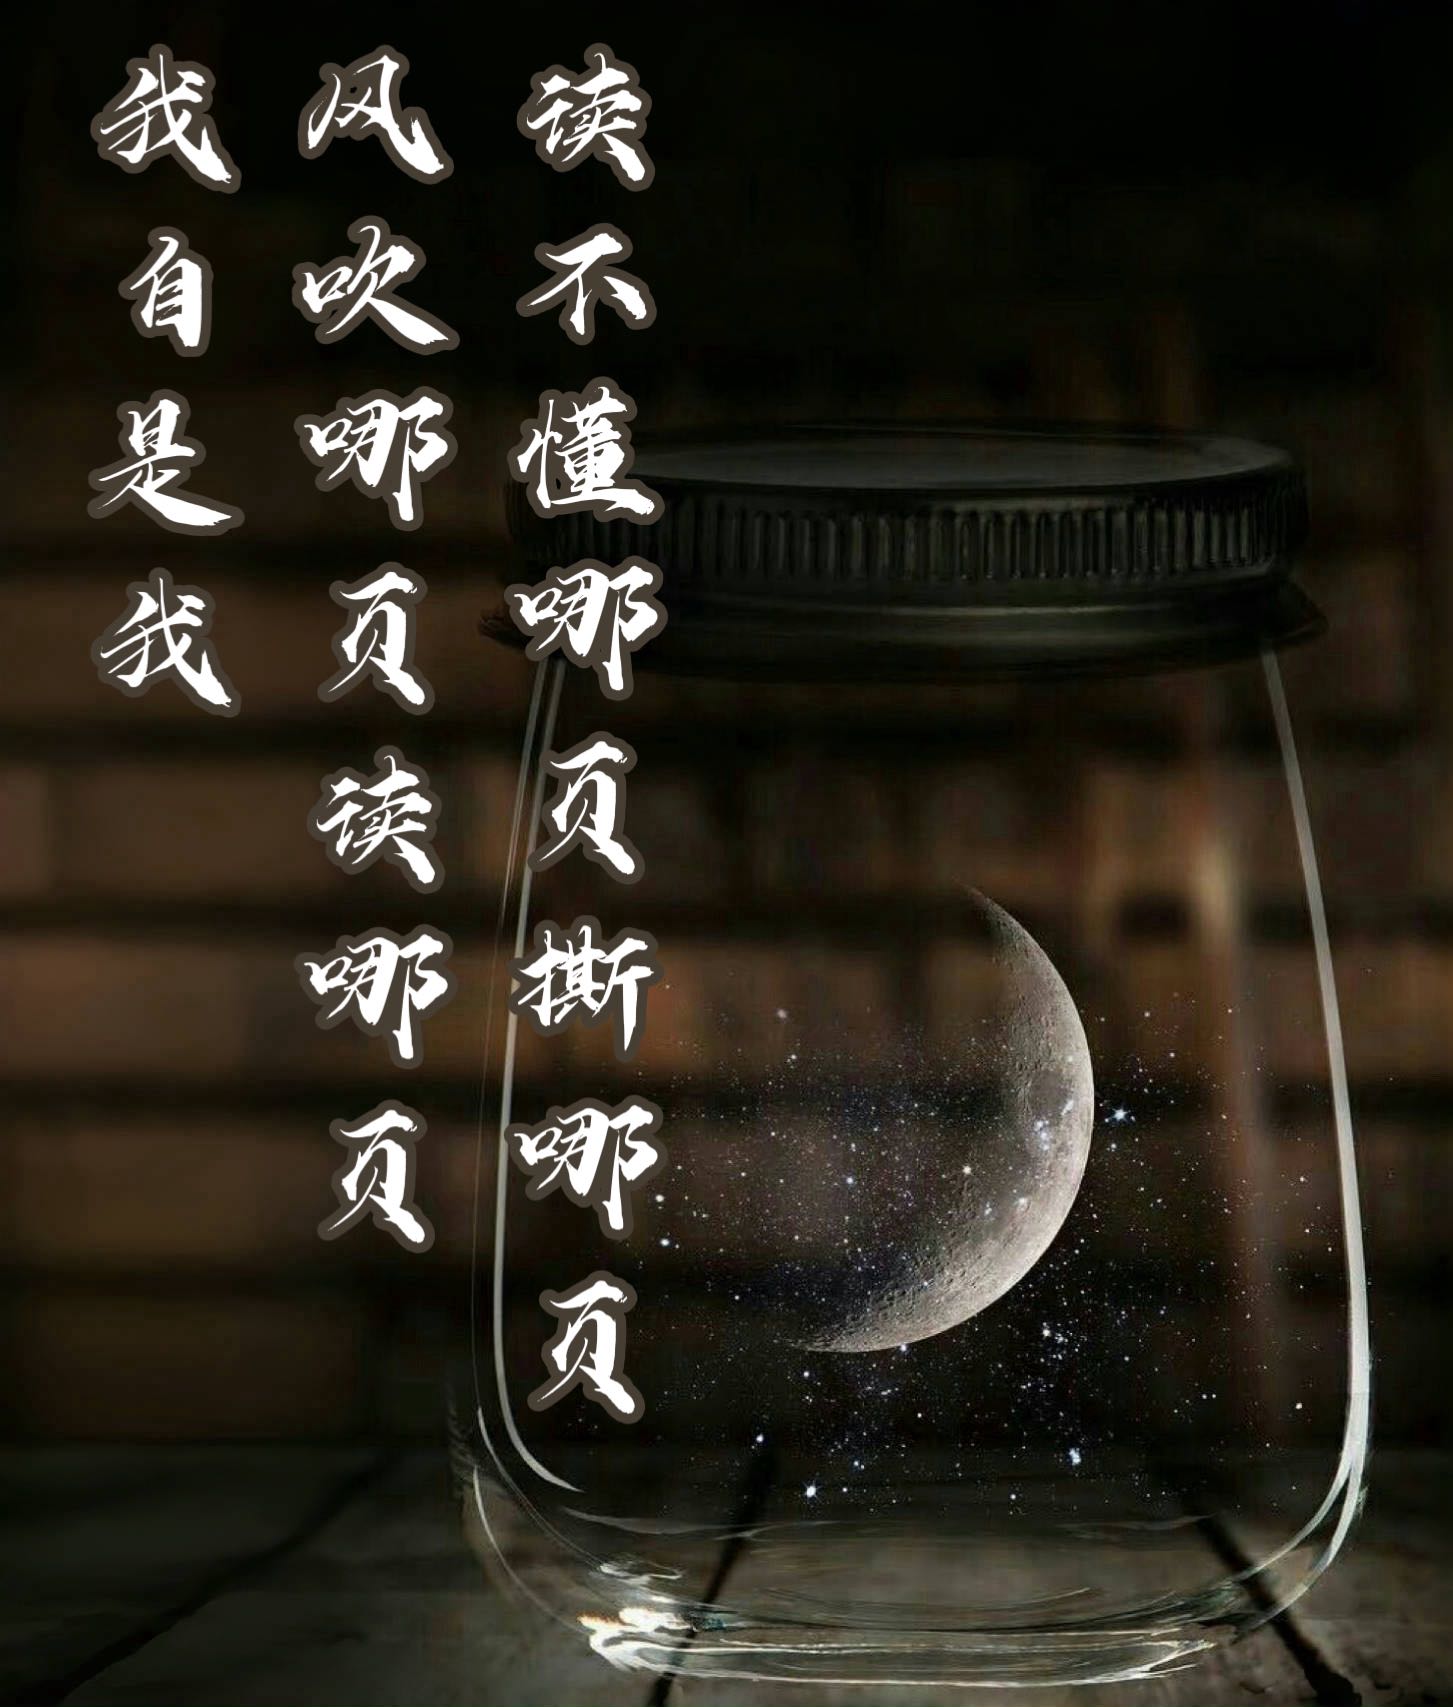 我自是我
风吹哪页读哪页
读不懂哪页撕哪页